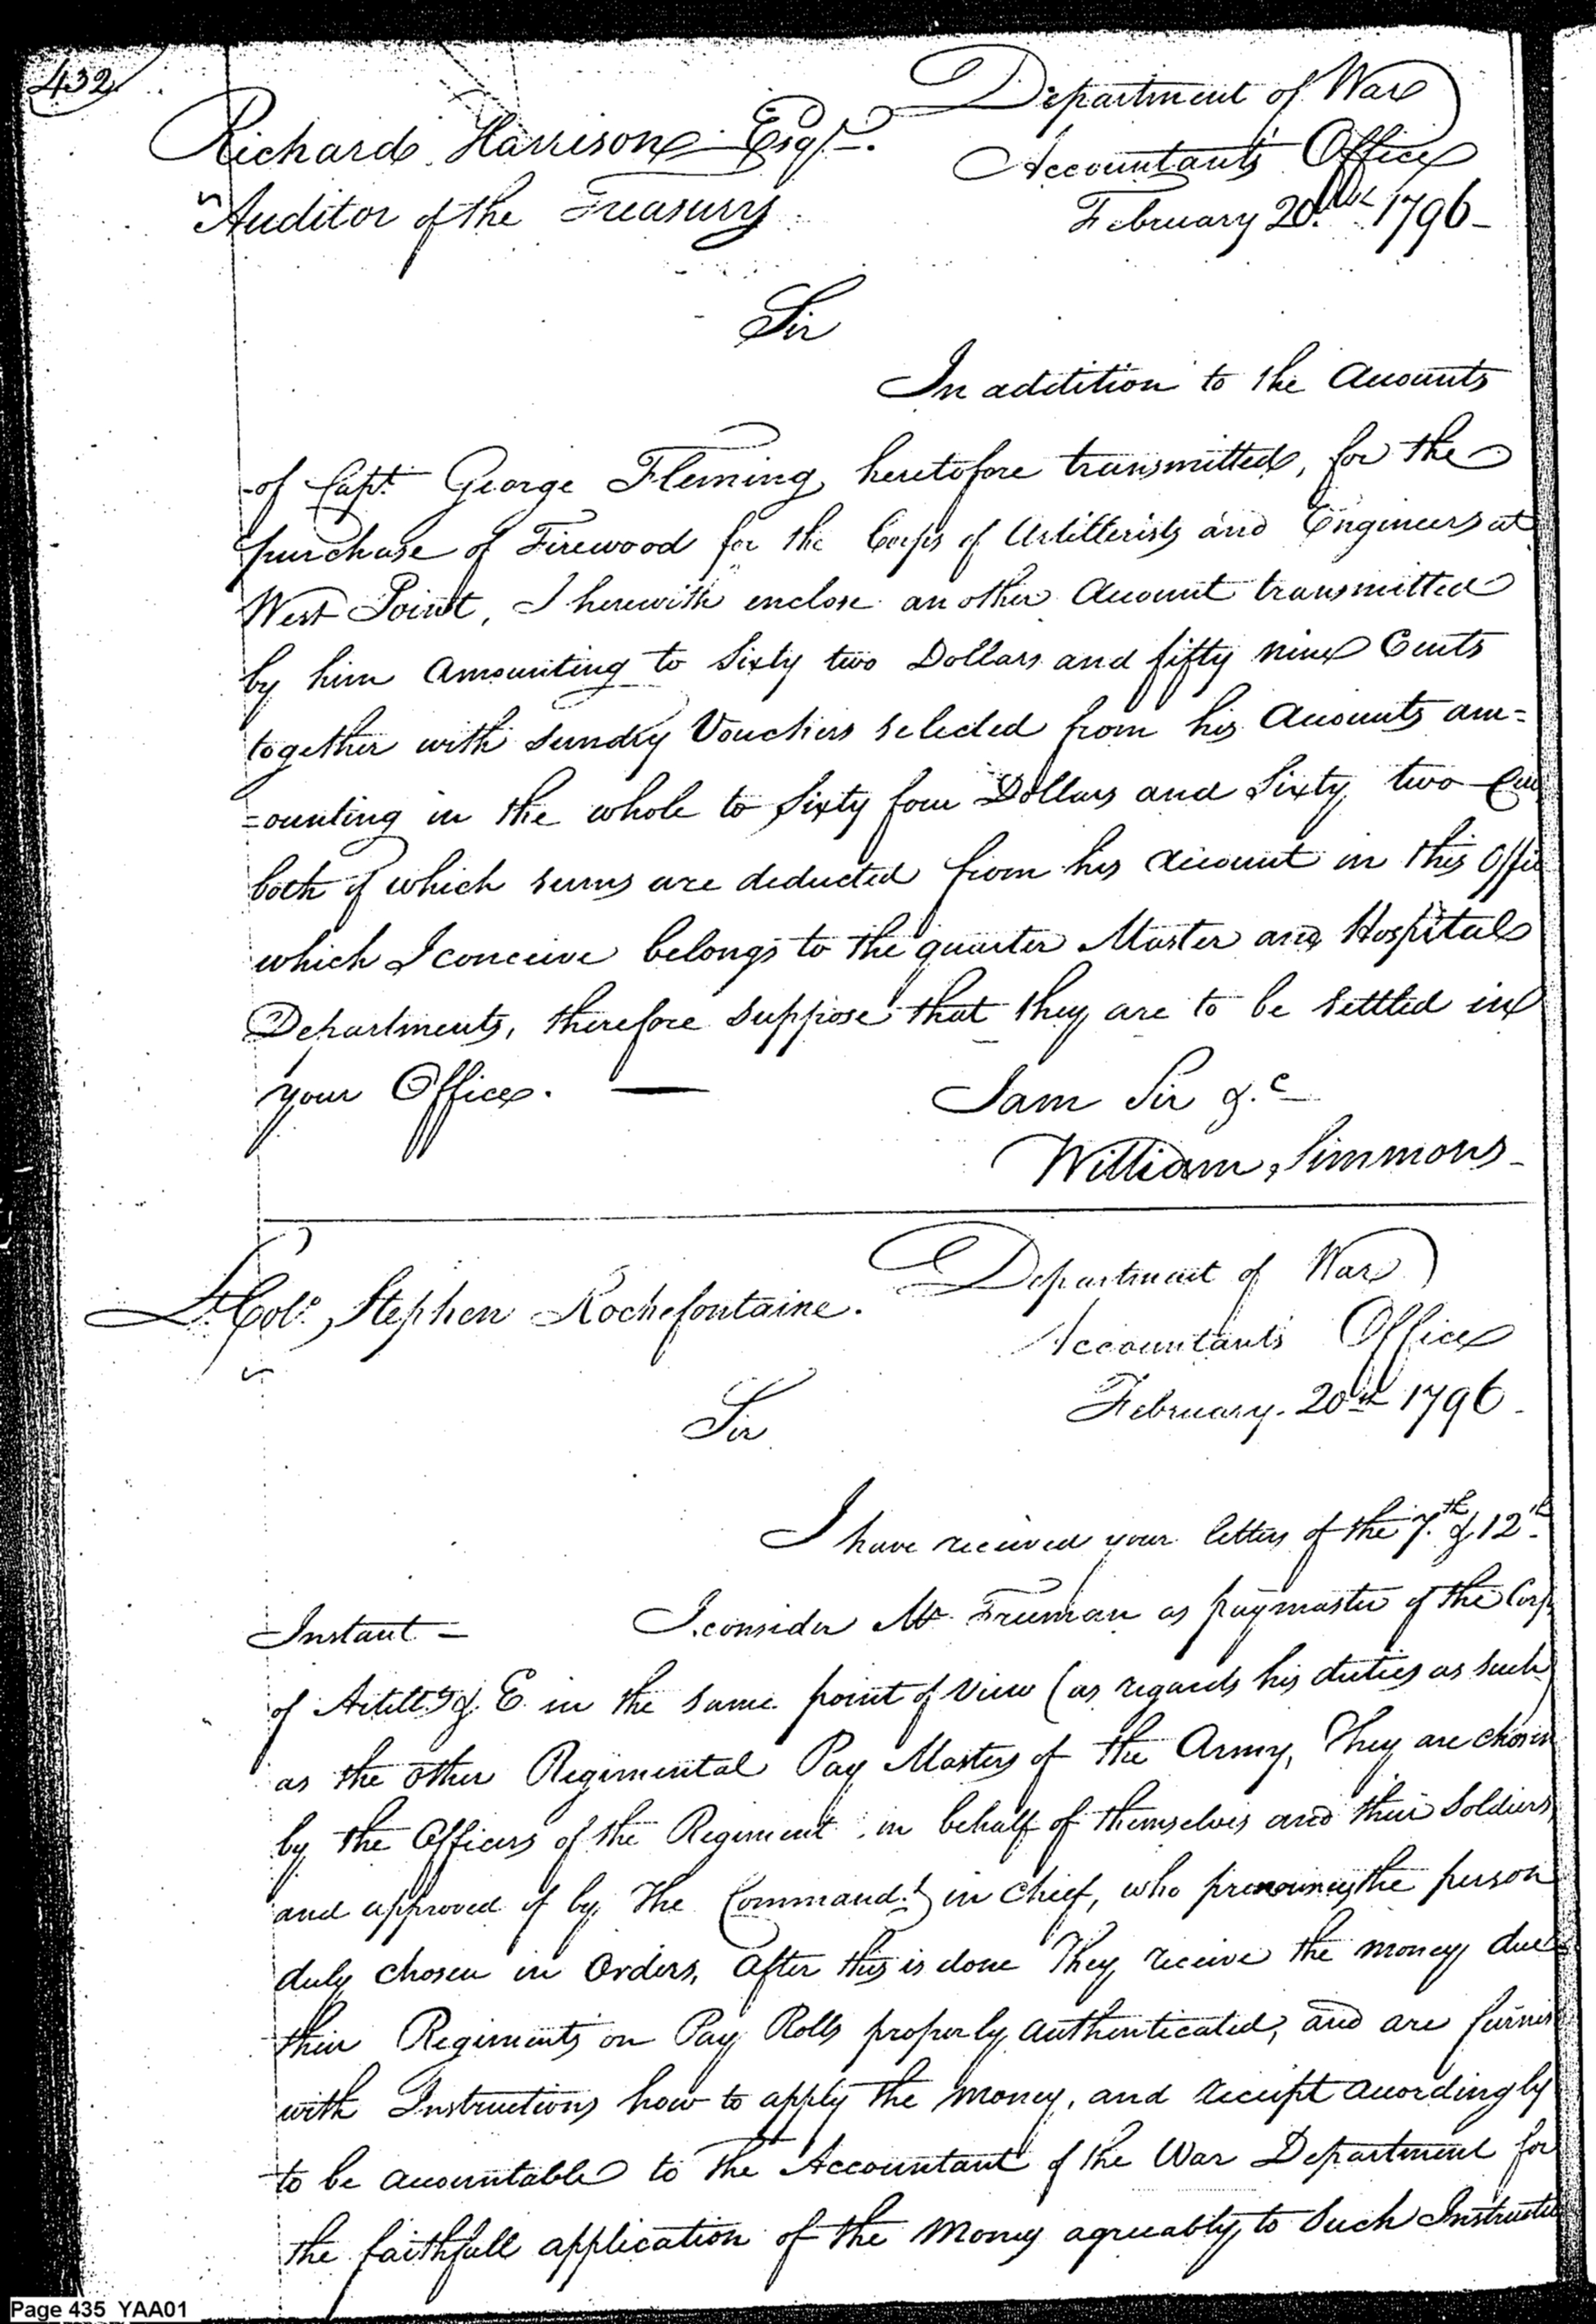 432
Richard Harrison Esqr.
Auditor of the Treasury
Department of War
Accountant's Office
February 20th 1796
Sir
In addition to the Accounts
of Capt. George Fleming heretofore transmitted, for the
purchase of Firewood for the Corps of Artillerists and Engineers at
West Point, I herewith enclose another Account transmitted
by him Amounting to Sixty two Dollars and fifty nine Cents
together with sundry Vouchers selected from his Accounts am=
=ounting in the whole to Sixty four Dollars and Sixty two Cen
both of which sums are deducted from his account in this Offi
which I conceive belongs to the quarter Master and Hospital
Departments, therefore suppose that they are to be settled in
your Office. —
I am Sir &c
William Simmons
Lt. Colo. Stephen Rochefontaine.
Department of War
Accountant's Office
February 20th 1796
Sir
I have received your letters of the 7th & 12th
Instant = I consider Mr Freeman as paymaster of the Corp
of Artillts & E in the same point of view (as regards his duties as such)
as the other Regimental Pay Masters of the Army, They are chosen
by the Officers of the Regiment in behalf of themselves and their Soldiers
and approved of by The Command.t in chief, who pronounces the person
duly chosen in Orders, After this is done They receive the money due
their Regiments on Pay Rolls properly Authenticated, and are furnis
with Instructions how to apply the money, and receipt accordingly
to be accountable to the Accountant of the War Department for
the faithfull application of the Money agreeably to Such Instructi
Page 435 YAA01